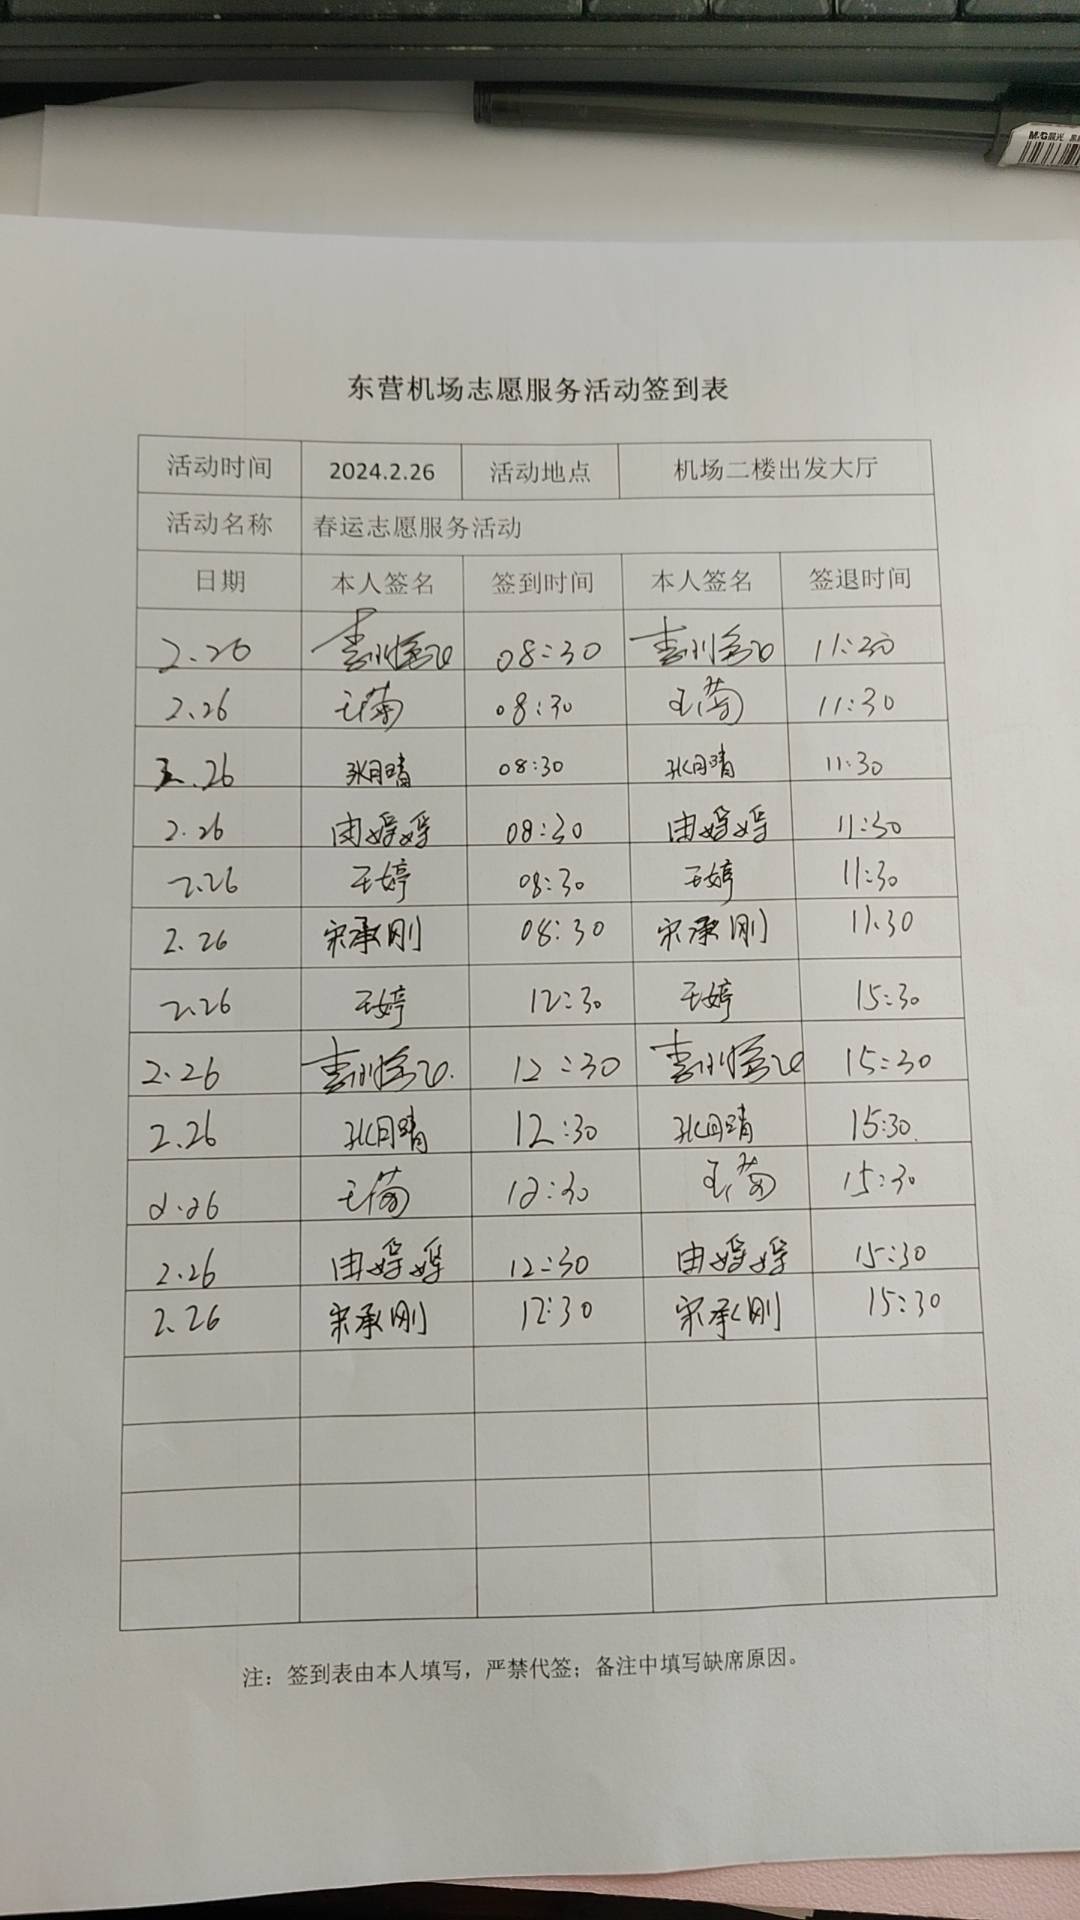 M&G晨光
东营机场志愿服务活动签到表
活动时间 2024.2.26 活动地点 机场二楼出发大厅
活动名称 春运志愿服务活动
日期 本人签名 签到时间 本人签名 签退时间
2.26 08:30 11:30
2.26 王菊 08:30 王菊 11:30
2.26 张月晴 08:30 张月晴 11:30
2.26 由婷婷 08:30 由婷婷 11:30
2.26 王婷 08:30 王婷 11:30
2.26 宋承刚 08:30 宋承刚 11:30
2.26 王婷 12:30 王婷 15:30
2.26 12:30 15:30
2.26 张月晴 12:30 张月晴 15:30
2.26 王菊 12:30 王菊 15:30
2.26 由婷婷 12:30 由婷婷 15:30
2.26 宋承刚 12:30 宋承刚 15:30
注：签到表由本人填写，严禁代签；备注中填写缺席原因。